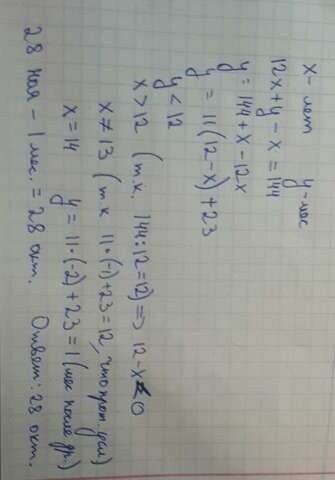 x - лет   y - мес
12x + y - x = 144
y = 144 + x - 12x
y = 11(12-x) + 23
y < 12
x > 12 (т.к. 144:12=12) => 12-x < 0
x ≠ 13 (т.к 11·(-1)+23=12, что прот. усл)
x = 14   y = 11·(-2)+23 = 1 (мес после др)
28 ноя - 1 мес. = 28 окт.   Ответ: 28 окт.